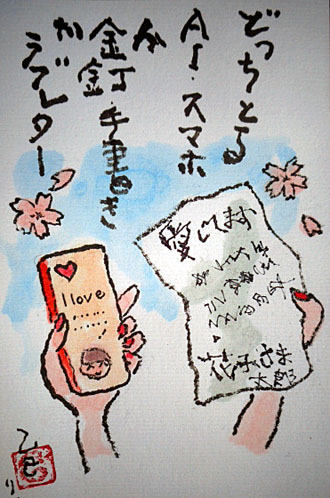 どっちとる
AI・スマホ
か
金釘・手書き
か
ラブレター
I love
愛してます
花子さま
太郎
乙
巳